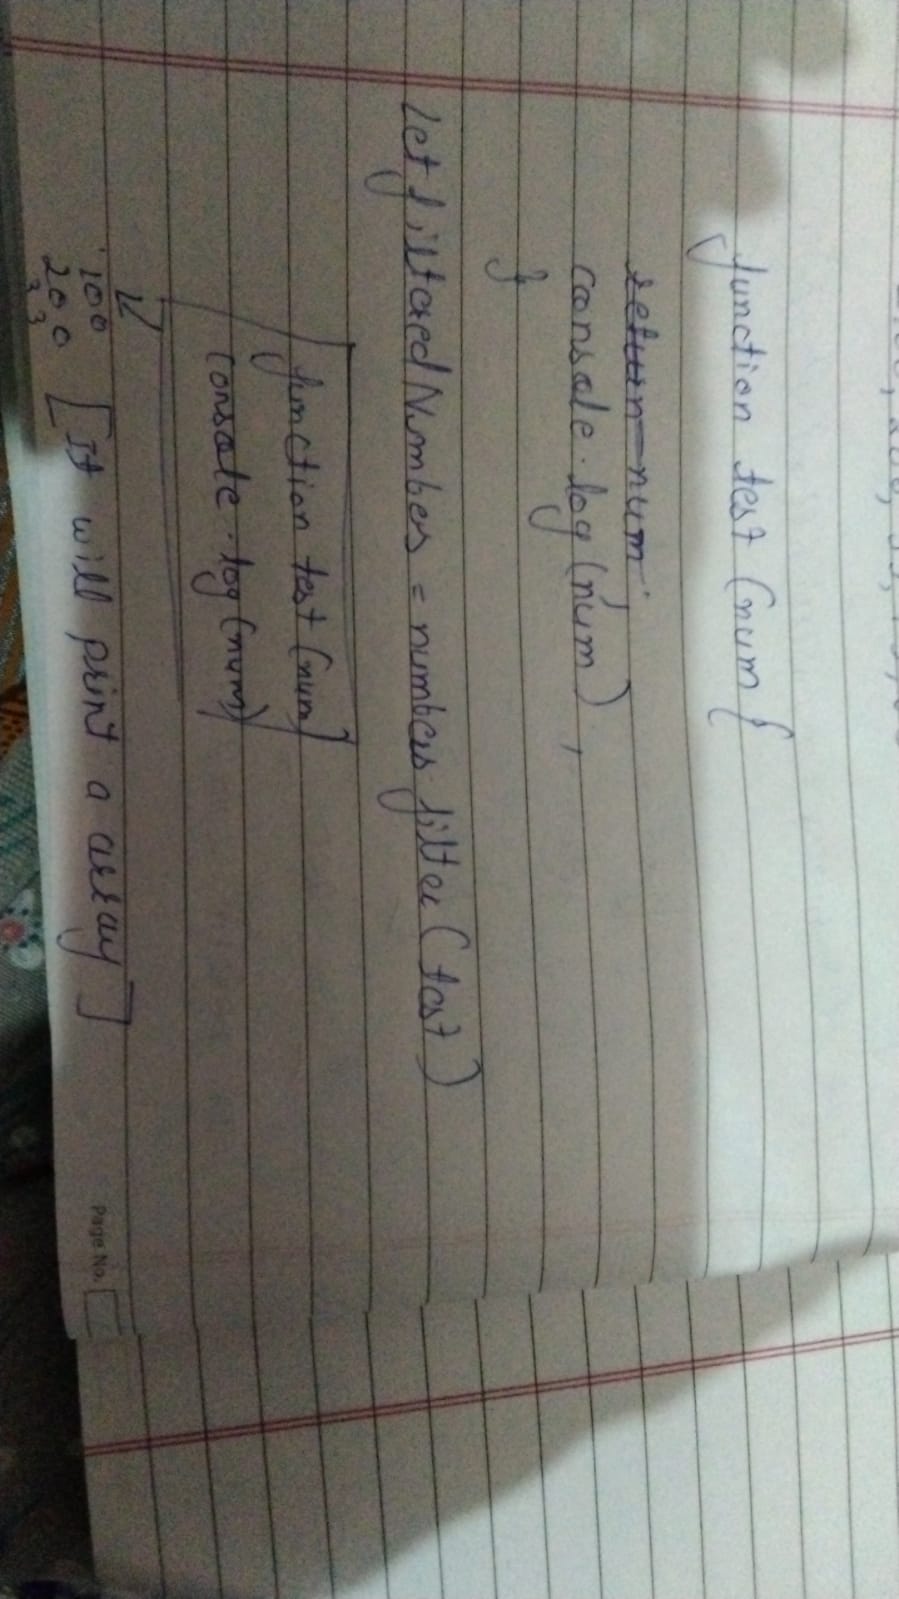 function test (num {
return num
console.log (num),
}
let filteredNumbers = numbers filter (test)
function test (num)
console.log (num)
100
200 [It will print a array]
33
Page No.